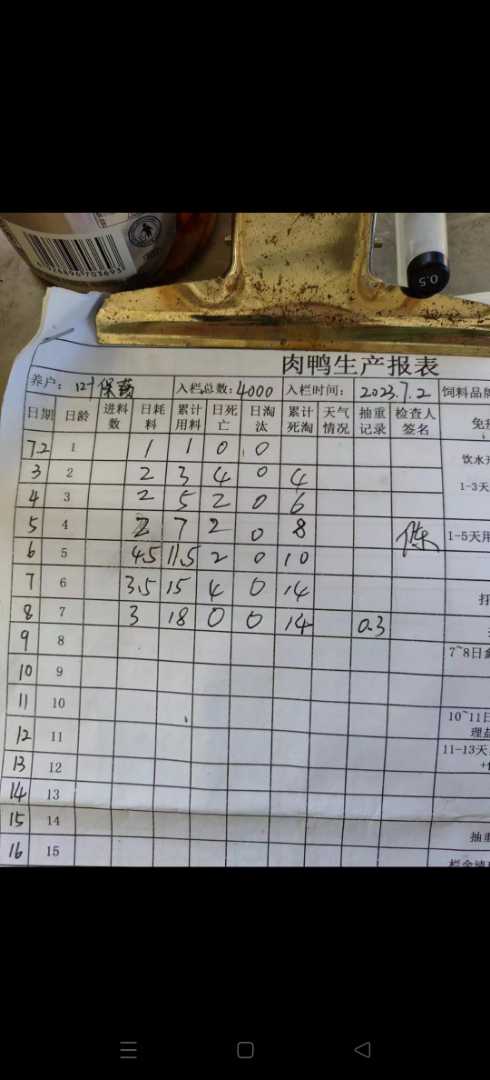 0.5
肉鸭生产报表
养户： 保 入栏总数：4000 入栏时间：2023.7.2 饲料品牌
日期 日龄 进料数 日耗料 累计用料 日死亡 日淘汰 累计死淘 天气情况 抽重记录 检查人签名 免
7.2 1 1 1 0 0 饮水
3 2 2 3 4 0 4 1-3天
4 3 2 5 2 0 6
5 4 2 7 2 0 8 1-5天用
6 5 4.5 11.5 2 0 10
7 6 3.5 15 4 0 14
8 7 3 18 0 0 14 0.3
9 8 7~8日
10 9
11 10 10~11日
12 11 理
13 12 11-13天
14 13
15 14 抽重
16 15